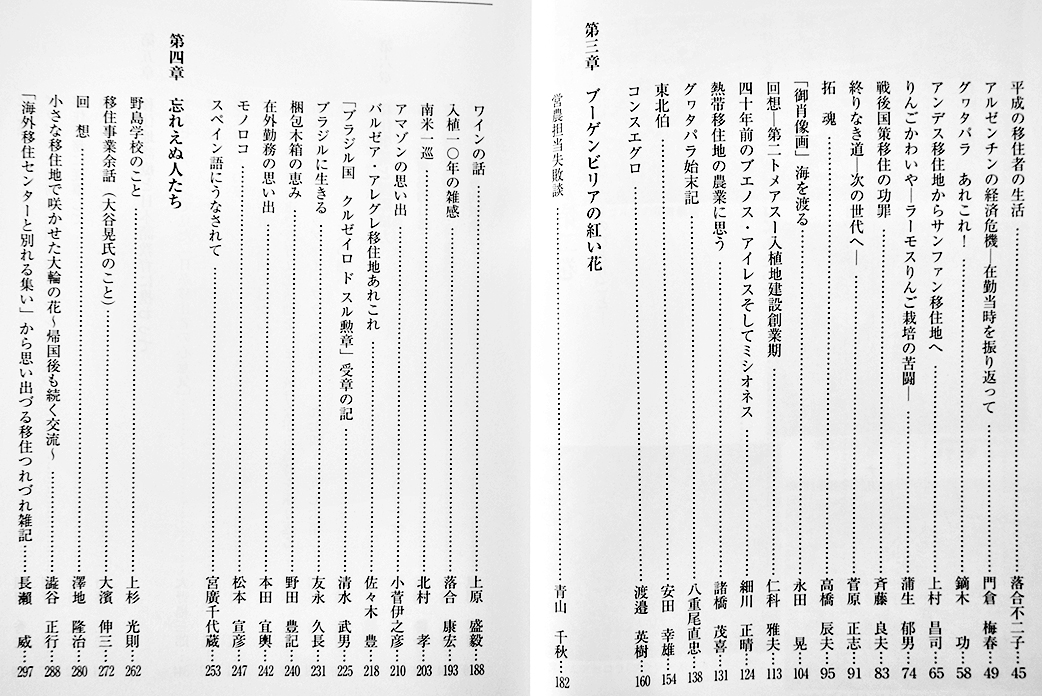 平成の移住者の生活……落合不二子…45
アルゼンチンの経済危機―在勤当時を振り返って……門倉 梅春…49
グヮタパラ あれこれ！……鏑木 功…58
アンデス移住地からサンファン移住地へ……上村 昌司…65
りんごかわいや―ラーモスりんご栽培の苦闘―……蒲生 郁男…74
戦後国策移住の功罪……斉藤 良夫…83
終りなき道―次の世代へ―……菅原 正志…91
拓 魂……高橋 辰夫…95
「御肖像画」海を渡る……永田 晃…104
回想―第二トメアスー入植地建設創業期……仁科 雅夫…113
四十年前のブエノス・アイレスそしてミシオネス……細川 正晴…124
熱帯移住地の農業に思う……諸橋 茂喜…131
グヮタパラ始末記……八重尾直忠…138
東北伯……安田 幸雄…154
コンスエグロ……渡邉 英樹…160
第三章 ブーゲンビリアの紅い花
営農担当失敗談……青山 千秋…182
ワインの話……上原 盛毅…188
入植一〇年の雑感……落合 康宏…193
南米一巡……北村 孝…203
アマゾンの思い出……小菅伊之彦…210
バルゼア・アレグレ移住地あれこれ……佐々木 豊…218
「ブラジル国 クルゼイロ ド スル勲章」受章の記……清水 武男…225
ブラジルに生きる……友永 久長…231
梱包木箱の恵み……野田 豊記…240
在外勤務の思い出……本田 宜輿…242
モノロコ……松本 宣彦…247
スペイン語にうなされて……宮廣千代蔵…253
第四章 忘れえぬ人たち
野島学校のこと……上杉 光則…262
移住事業余話（大谷晃氏のこと）……大濱 伸三…272
回 想……澤地 隆治…280
小さな移住地で咲かせた大輪の花～帰国後も続く交流～……澁谷 正行…288
「海外移住センターと別れる集い」から思い出づる移住つれづれ雑記……長瀬 威…297